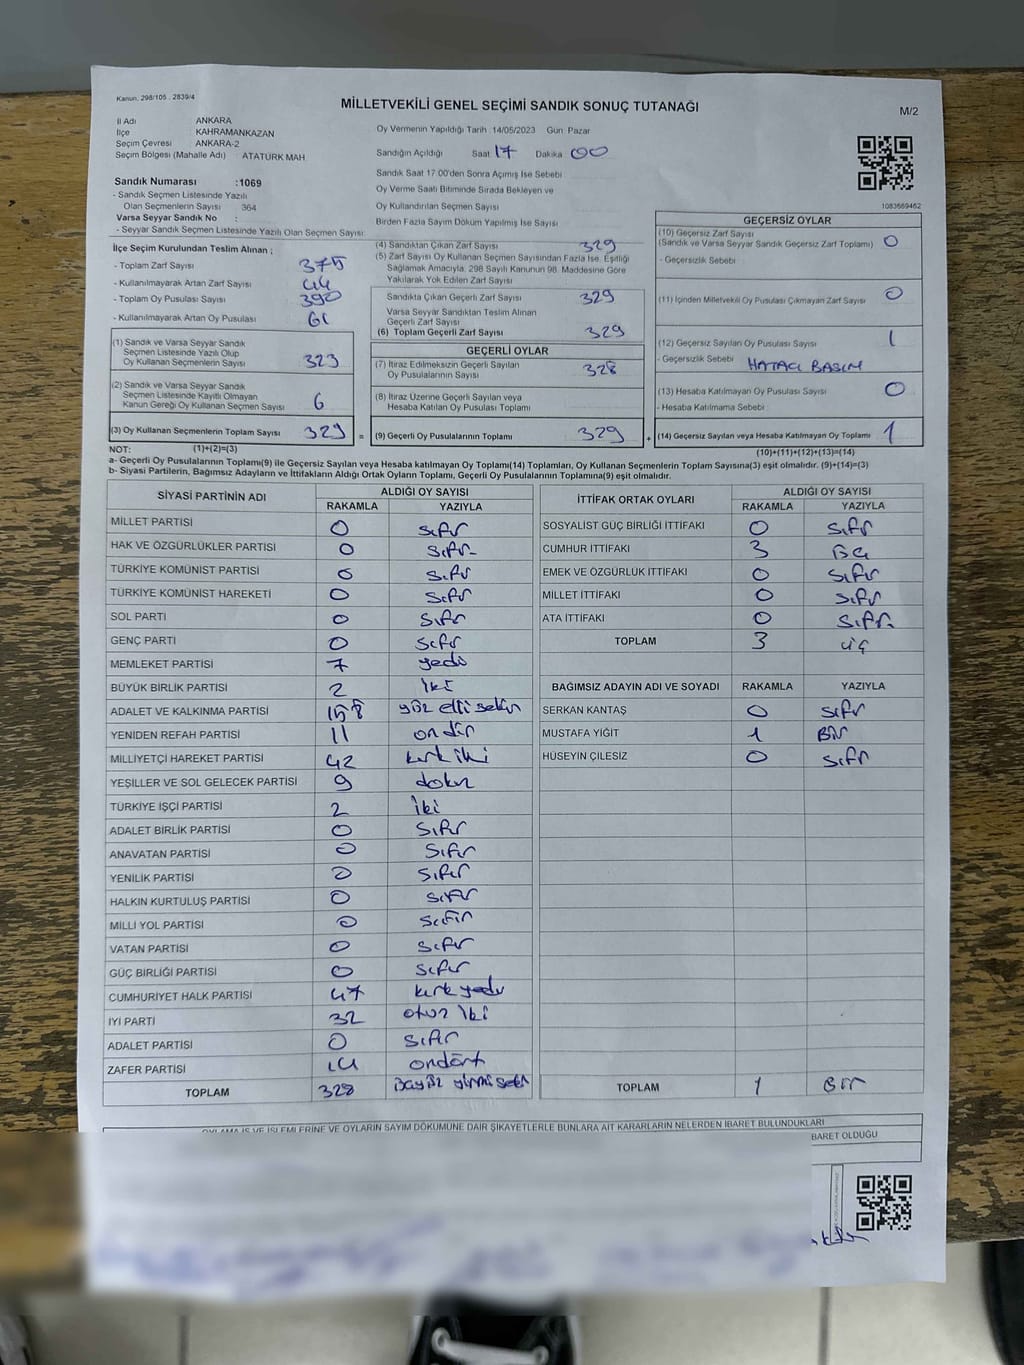 Kanun, 298/105 . 2839/4
MİLLETVEKİLİ GENEL SEÇİMİ SANDIK SONUÇ TUTANAĞI
M/2
İl Adı ANKARA
İlçe KAHRAMANKAZAN
Seçim Çevresi ANKARA-2
Seçim Bölgesi (Mahalle Adı) ATATÜRK MAH.
Sandık Numarası :1069
- Sandık Seçmen Listesinde Yazılı
Olan Seçmenlerin Sayısı 364
Varsa Seyyar Sandık No :
- Seyyar Sandık Seçmen Listesinde Yazılı Olan Seçmen Sayısı:
Oy Vermenin Yapıldığı Tarih :14/05/2023 Gün: Pazar
Sandığın Açıldığı Saat 17 Dakika 00
Sandık Saat 17:00'den Sonra Açılmış İse Sebebi
Oy Verme Saati Bitiminde Sırada Bekleyen ve
Oy Kullandırılan Seçmen Sayısı
Birden Fazla Sayım Döküm Yapılmış İse Sayısı
1083669462
İlçe Seçim Kurulundan Teslim Alınan ;
- Toplam Zarf Sayısı 375
- Kullanılmayarak Artan Zarf Sayısı 44
- Toplam Oy Pusulası Sayısı 390
- Kullanılmayarak Artan Oy Pusulası 61
(1) Sandık ve Varsa Seyyar Sandık
Seçmen Listesinde Yazılı Olup
Oy Kullanan Seçmenlerin Sayısı 323
(2) Sandık ve Varsa Seyyar Sandık
Seçmen Listesinde Kayıtlı Olmayan
Kanun Gereği Oy Kullanan Seçmen Sayısı 6
(3) Oy Kullanan Seçmenlerin Toplam Sayısı 329 =
(4) Sandıktan Çıkan Zarf Sayısı 329
(5) Zarf Sayısı Oy Kullanan Seçmen Sayısından Fazla İse, Eşitliği
Sağlamak Amacıyla, 298 Sayılı Kanunun 98. Maddesine Göre
Yakılarak Yok Edilen Zarf Sayısı
Sandıkta Çıkan Geçerli Zarf Sayısı 329
Varsa Seyyar Sandıktan Teslim Alınan
Geçerli Zarf Sayısı
(6) Toplam Geçerli Zarf Sayısı 329
GEÇERLİ OYLAR
(7) İtiraz Edilmeksizin Geçerli Sayılan
Oy Pusulalarının Sayısı 328
(8) İtiraz Üzerine Geçerli Sayılan veya
Hesaba Katılan Oy Pusulası Toplamı
(9) Geçerli Oy Pusulalarının Toplamı 329 +
GEÇERSİZ OYLAR
(10) Geçersiz Zarf Sayısı
(Sandık ve Varsa Seyyar Sandık Geçersiz Zarf Toplamı) 0
- Geçersizlik Sebebi
(11) İçinden Milletvekili Oy Pusulası Çıkmayan Zarf Sayısı 0
(12) Geçersiz Sayılan Oy Pusulası Sayısı 1
- Geçersizlik Sebebi HATALI BASIM
(13) Hesaba Katılmayan Oy Pusulası Sayısı 0
- Hesaba Katılmama Sebebi
(14) Geçersiz Sayılan veya Hesaba Katılmayan Oy Toplamı 1
NOT: (1)+(2)=(3)
(10)+(11)+(12)+(13)=(14)
a- Geçerli Oy Pusulalarının Toplamı(9) ile Geçersiz Sayılan veya Hesaba katılmayan Oy Toplamı(14) Toplamları, Oy Kullanan Seçmenlerin Toplam Sayısına(3) eşit olmalıdır. (9)+(14)=(3)
b- Siyasi Partilerin, Bağımsız Adayların ve İttifakların Aldığı Ortak Oyların Toplamı, Geçerli Oy Pusulalarının Toplamına(9) eşit olmalıdır.
SİYASİ PARTİNİN ADI ALDIĞI OY SAYISI
RAKAMLA YAZIYLA
MİLLET PARTİSİ 0 sıfır
HAK VE ÖZGÜRLÜKLER PARTİSİ 0 sıfır
TÜRKİYE KOMÜNİST PARTİSİ 0 sıfır
TÜRKİYE KOMÜNİST HAREKETİ 0 sıfır
SOL PARTİ 0 sıfır
GENÇ PARTİ 0 sıfır
MEMLEKET PARTİSİ 7 yedi
BÜYÜK BİRLİK PARTİSİ 2 iki
ADALET VE KALKINMA PARTİSİ 158 yüz elli sekiz
YENİDEN REFAH PARTİSİ 11 on bir
MİLLİYETÇİ HAREKET PARTİSİ 42 kırk iki
YEŞİLLER VE SOL GELECEK PARTİSİ 9 dokuz
TÜRKİYE İŞÇİ PARTİSİ 2 iki
ADALET BİRLİK PARTİSİ 0 sıfır
ANAVATAN PARTİSİ 0 sıfır
YENİLİK PARTİSİ 0 sıfır
HALKIN KURTULUŞ PARTİSİ 0 sıfır
MİLLİ YOL PARTİSİ 0 sıfır
VATAN PARTİSİ 0 sıfır
GÜÇ BİRLİĞİ PARTİSİ 0 sıfır
CUMHURİYET HALK PARTİSİ 47 kırk yedi
İYİ PARTİ 32 otuz iki
ADALET PARTİSİ 0 sıfır
ZAFER PARTİSİ 14 ondört
TOPLAM 328 üçyüz yirmi sekiz
İTTİFAK ORTAK OYLARI ALDIĞI OY SAYISI
RAKAMLA YAZIYLA
SOSYALİST GÜÇ BİRLİĞİ İTTİFAKI 0 sıfır
CUMHUR İTTİFAKI 3
EMEK VE ÖZGÜRLÜK İTTİFAKI 0 sıfır
MİLLET İTTİFAKI 0 sıfır
ATA İTTİFAKI 0 sıfır
TOPLAM 3 üç
BAĞIMSIZ ADAYIN ADI VE SOYADI RAKAMLA YAZIYLA
SERKAN KANTAŞ 0 sıfır
MUSTAFA YİĞİT 1 Bir
HÜSEYİN ÇİLESIZ 0 sıfır
TOPLAM 1 Bir
OYLAMA İŞ VE İŞLEMLERİNE VE OYLARIN SAYIM DÖKÜMÜNE DAİR ŞİKAYETLERLE BUNLARA AİT KARARLARIN NELERDEN İBARET BULUNDUKLARI
BARET OLDUĞU